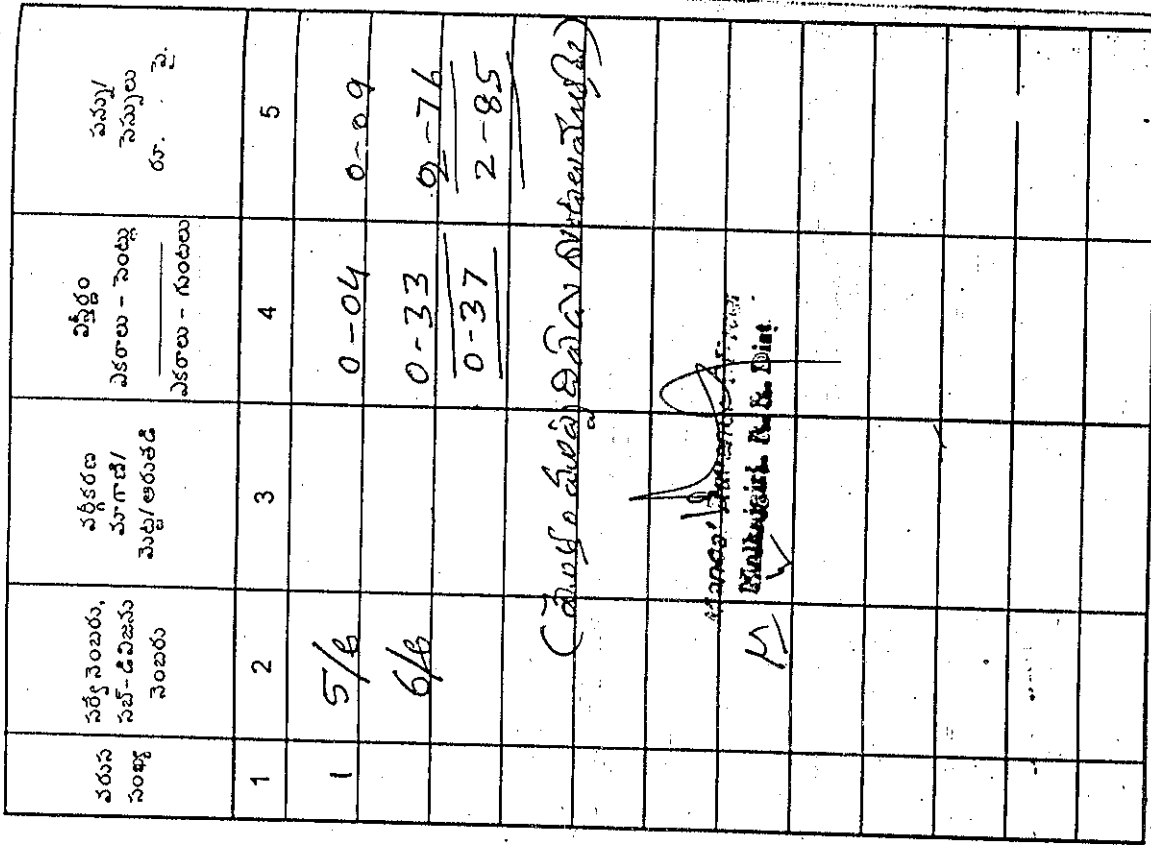 వరుస సంఖ్య
సర్వే నెంబరు, సబ్-డివిజను నెంబరు
వర్గీకరణ మాగాణి/ మెట్ట/ఆరుతడి
విస్తీర్ణం ఎకరాలు - సెంట్లు ఎకరాలు - గుంటలు
పన్ను/ పన్నులు రూ. పై.
1 2 3 4 5
1 5/ఓ 0-04 0-09
6/ఓ 0-33 2-76
0-37 2-85
(మొత్తం ముప్పది ఏడు గుంటలు మాత్రమే)
Malkajgiri, R.R. Dist.